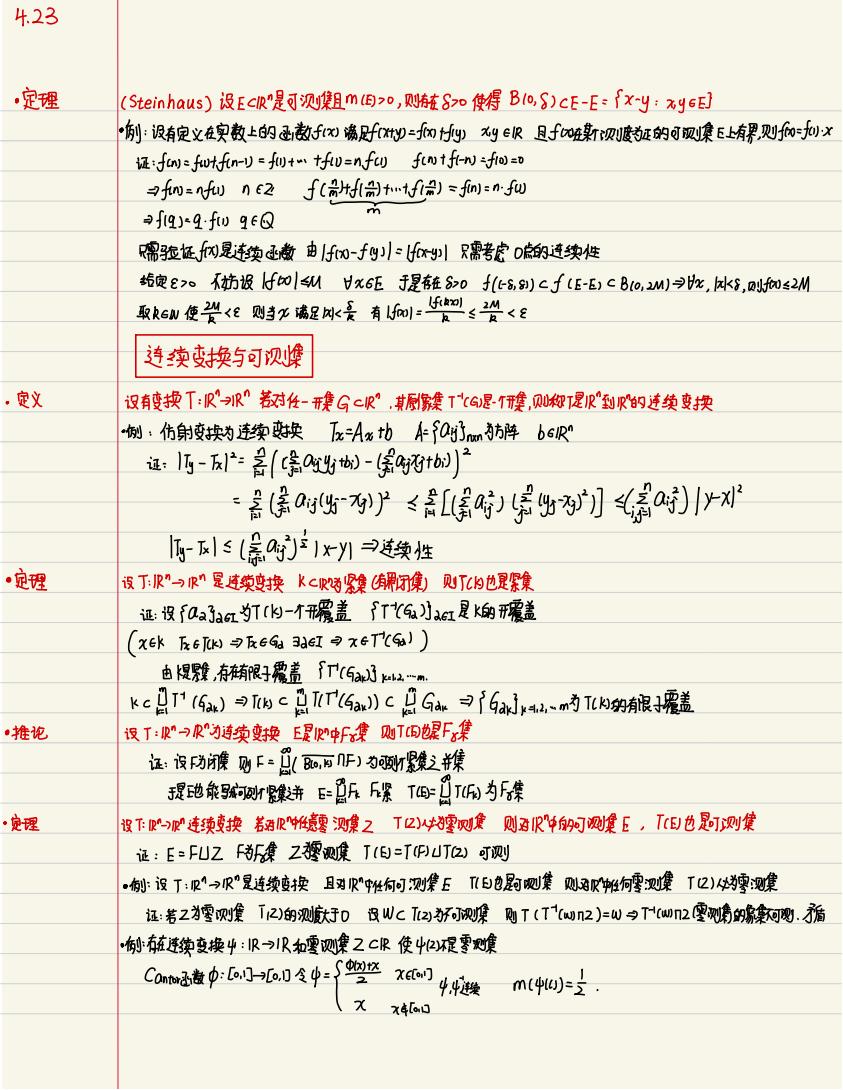 4.23
·定理 (Steinhaus) 设E⊂ℝⁿ是可测集且m(E)>0,则存在δ>0 使得 B(0,δ)⊂E-E={x-y: x,y∈E}
·例:设有定义在实数上的函数f(x) 满足f(x+y)=f(x)+f(y) x,y∈ℝ 且f(x)在某个测度为正的可测集E上有界,则f(x)=f(1)·x
证:f(n)=f(1)+f(n-1)=f(1)+…+f(1)=nf(1) f(n)+f(-n)=f(0)=0
⇒f(n)=nf(1) n∈ℤ f(n/m)+f(n/m)+…+f(n/m)=f(n)=n·f(1) m
⇒f(q)=q·f(1) q∈ℚ
只需验证f(x)是连续函数 由|f(x)-f(y)|=|f(x-y)| 只需考虑0点的连续性
给定ε>0 不妨设|f(x)|≤M ∀x∈E 于是存在δ>0 f((-δ,δ))⊂f(E-E)⊂B(0,2M)⇒∀x,|x|<δ,则f(x)≤2M
取k∈ℕ 使2M/k<ε 则当x满足|x|<δ/k 有|f(x)|=|f(kx)|/k≤2M/k<ε
连续变换与可测集
·定义 设有变换T:ℝⁿ→ℝⁿ 若对任一开集G⊂ℝⁿ,其原像集T⁻¹(G)是一个开集,则称T是ℝⁿ到ℝⁿ的连续变换
·例:仿射变换为连续变换 Tx=Ax+b A={aij}n×n为方阵 b∈ℝⁿ
证:|Ty-Tx|²=∑ⁿᵢ₌₁((∑ⁿⱼ₌₁aijyj+bi)-(∑ⁿⱼ₌₁aijxj+bi))²
=∑ⁿᵢ₌₁(∑ⁿⱼ₌₁aij(yj-xj))²≤∑ⁿᵢ₌₁[(∑ⁿⱼ₌₁aij²)(∑ⁿⱼ₌₁(yj-xj)²)]≤(∑ⁿᵢ,ⱼ₌₁aij²)|y-x|²
|Ty-Tx|≤(∑ⁿᵢ,ⱼ₌₁aij²)^½|x-y|⇒连续性
·定理 设T:ℝⁿ→ℝⁿ是连续变换 K⊂ℝⁿ为紧集(有界闭集) 则T(K)也是紧集
证:设{Gα}α∈I为T(K)一个开覆盖 {T⁻¹(Gα)}α∈I是K的开覆盖
(x∈K Tx∈T(K)⇒Tx∈Gα ∃α∈I⇒x∈T⁻¹(Gα))
由K是紧集,存在有限子覆盖{T⁻¹(Gαk)}k=1,2,…m.
K⊂⋃ᵐₖ₌₁T⁻¹(Gαk)⇒T(K)⊂⋃ᵐₖ₌₁T(T⁻¹(Gαk))⊂⋃ᵐₖ₌₁Gαk⇒{Gαk}k=1,2,…m为T(K)的有限子覆盖
·推论 设T:ℝⁿ→ℝⁿ为连续变换 E是ℝⁿ中Fσ集 则T(E)也是Fσ集
证:设F为闭集 则F=⋃^∞ₖ₌₁(B(0,k)∩F)为可列个紧集之并集
于是E也能写成可列个紧集之并 E=⋃^∞ₖ₌₁Fk Fk紧 T(E)=⋃^∞ₖ₌₁T(Fk)为Fσ集
·定理 设T:ℝⁿ→ℝⁿ连续变换 若对ℝⁿ中任意零测集Z T(Z)必为零测集 则对ℝⁿ中的可测集E,T(E)也是可测集
证:E=F∪Z F为Fσ集 Z为零测集 T(E)=T(F)∪T(Z) 可测
·例:设T:ℝⁿ→ℝⁿ是连续变换 且对ℝⁿ中任何可测集E T(E)也是可测集 则对ℝⁿ中任何零测集 T(Z)必为零测集
证:若Z为零测集 T(Z)的测度大于0 设W⊂T(Z)为不可测集 则T(T⁻¹(W)∩Z)=W⇒T⁻¹(W)∩Z(零测集)的象集不可测.矛盾
·例:存在连续变换ψ:ℝ→ℝ和零测集Z⊂ℝ 使ψ(Z)不是零测集
Cantor函数Φ:[0,1]→[0,1] 令ψ={(Φ(x)+x)/2 x∈[0,1] ψ,ψ⁻¹连续 m(ψ(C))=1/2.
x x∉[0,1]